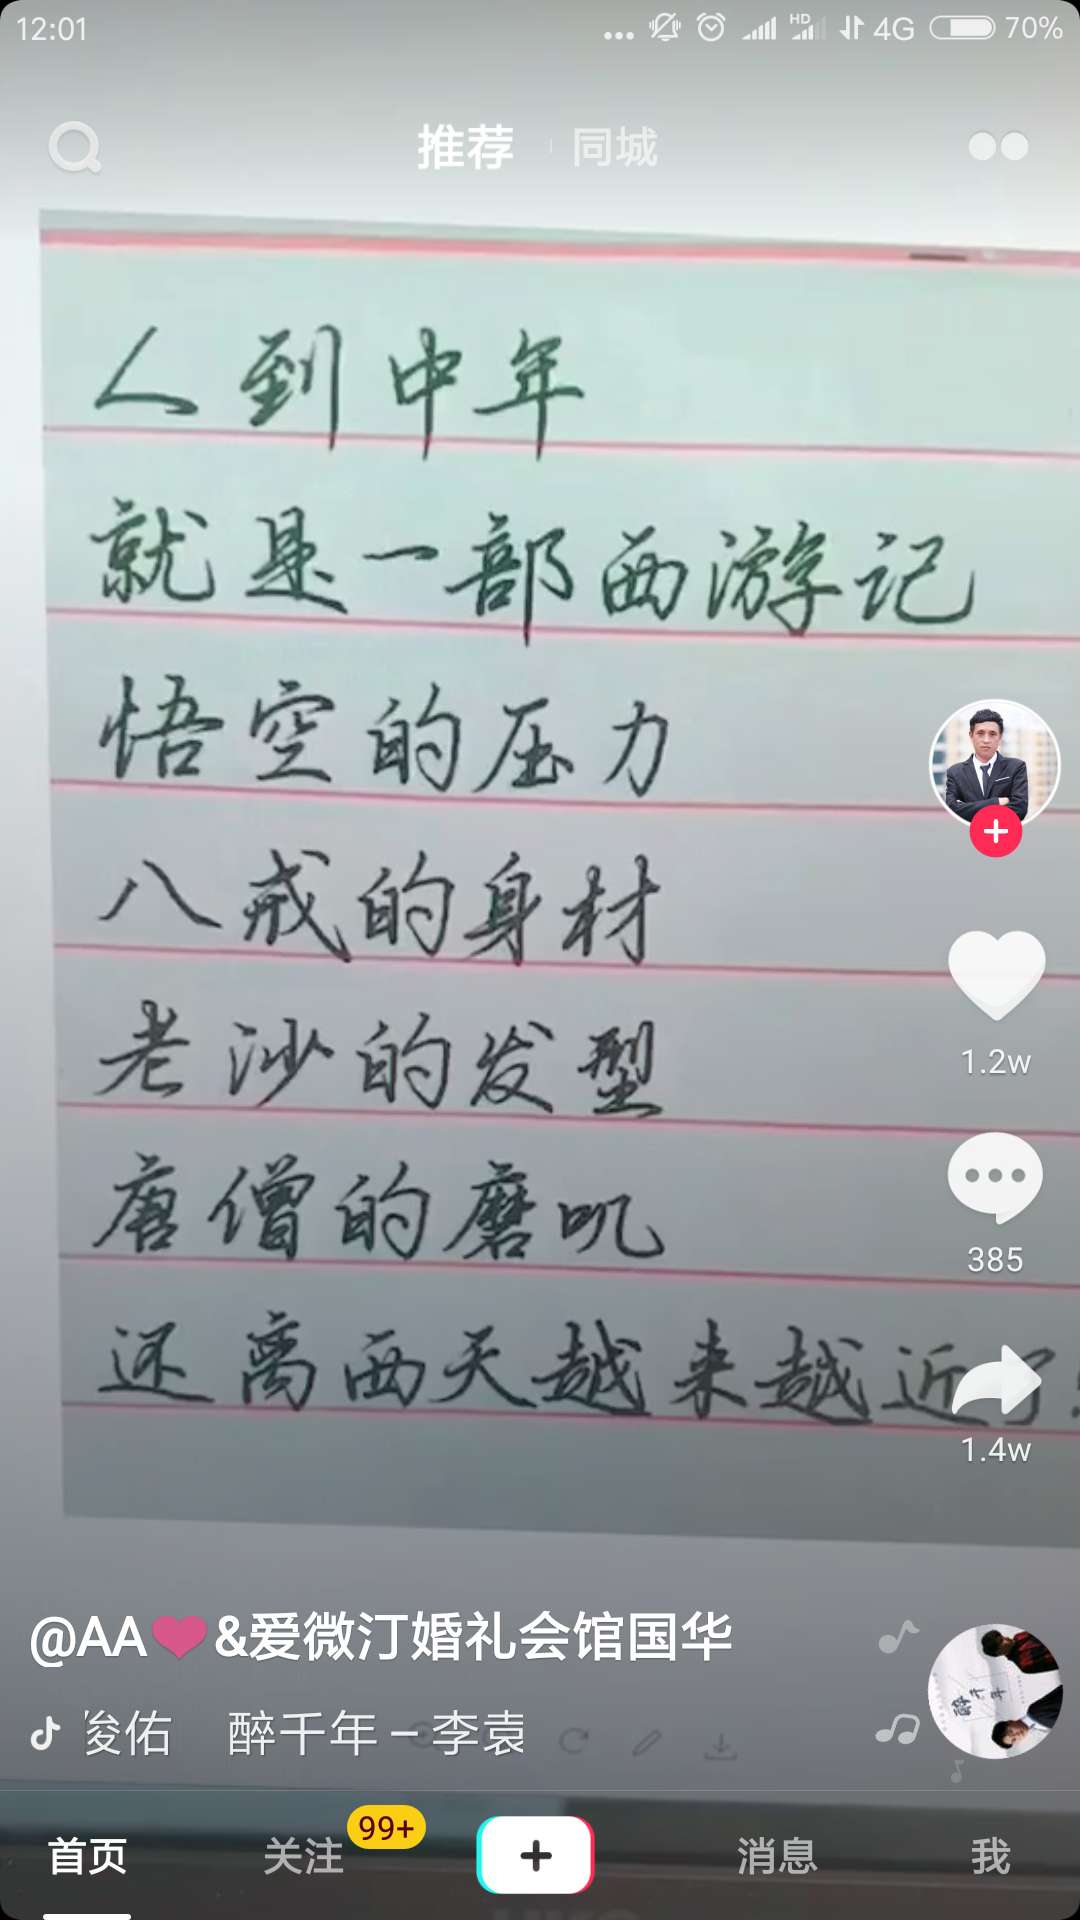 12:01
HD
4G
70%
推荐
同城
人到中年
就是一部西游记
悟空的压力
八戒的身材
老沙的发型
唐僧的磨叽
还离西天越来越近了
1.2w
385
1.4w
@AA❤&爱微汀婚礼会馆国华
俊佑 醉千年－李袁
醉千年
首页
关注
99+
消息
我